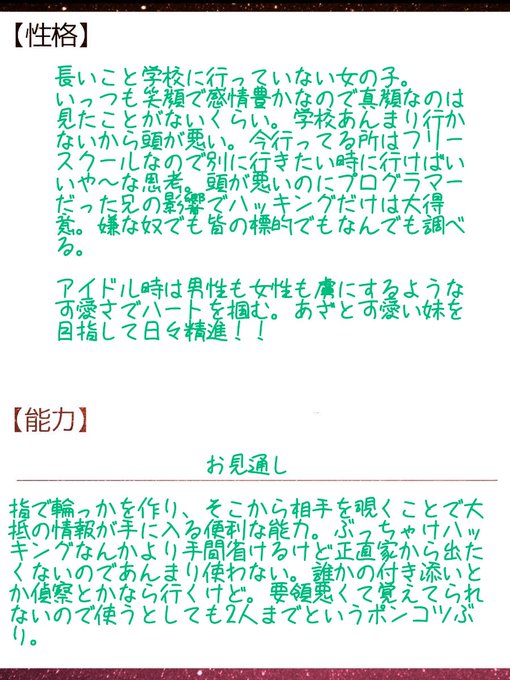 【性格】
長いこと学校に行っていない女の子。
いっつも笑顔で感情豊かなので真顔なのは
見たことがないくらい。学校あんまり行か
ないから頭が悪い。今行ってる所はフリー
スクールなので別に行きたい時に行けばい
いや~な思考。頭が悪いのにプログラマー
だった兄の影響でハッキングだけは大得
意。嫌な奴でも皆の標的でもなんでも調べ
る。
アイドル時は男性も女性も虜にするような
可愛さでハートを掴む。あざと可愛い妹を
目指して日々精進!!
【能力】
お見通し
指で輪っかを作り、そこから相手を覗くことで大
抵の情報が手に入る便利な能力。ぶっちゃけハッ
キングなんかより手間省けるけど正直家から出た
くないのであんまり使わない。誰かの付き添いと
か偵察とかなら行くけど。要領悪くて覚えてられ
ないので使うとしても2人までというポンコツぶ
り。